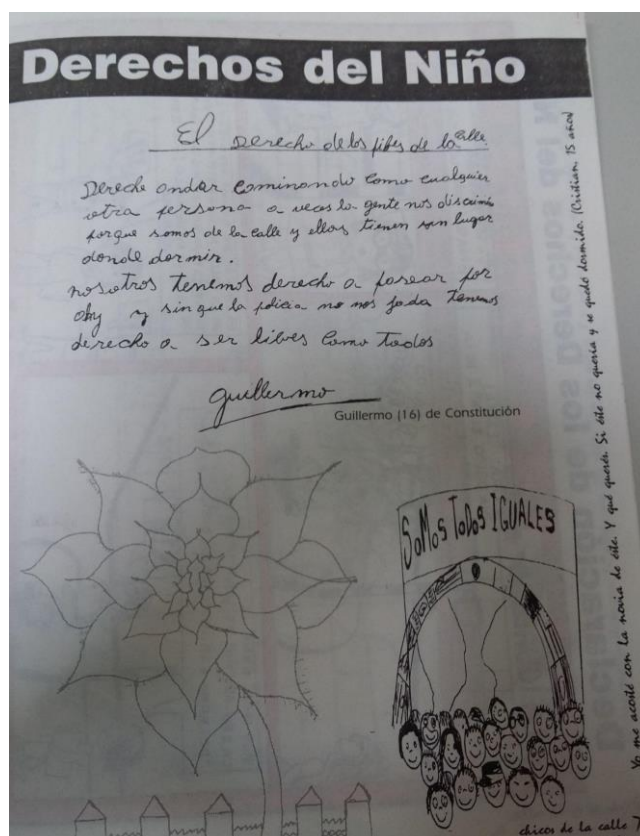 Derechos del Niño
El Derecho de los pibes de la calle
Derecho andar caminando como cualquier
otra persona a veces la gente nos discrimi
porque somos de la calle y ellos tienen un lugar
donde dormir.
nosotros tenemos derecho a pasear por
ahy y sin que la policia no nos joda tenemos
derecho a ser libres como todos
Guillermo
Guillermo (16) de Constitución
SOMOS TODOS IGUALES
chicos de la calle
Yo me acosté con la novia de éste. Y qué querés. Si éste no quería y se quedó dormido. (Cristian, 15 años)